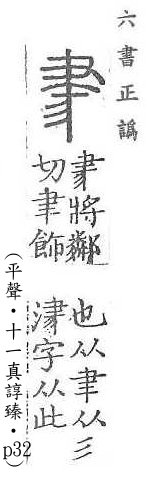 六書正譌
𦘔
𦘔將鄰
切聿飾
也从聿从彡
𣸁字从此
（平聲・十一真諄臻・p32）